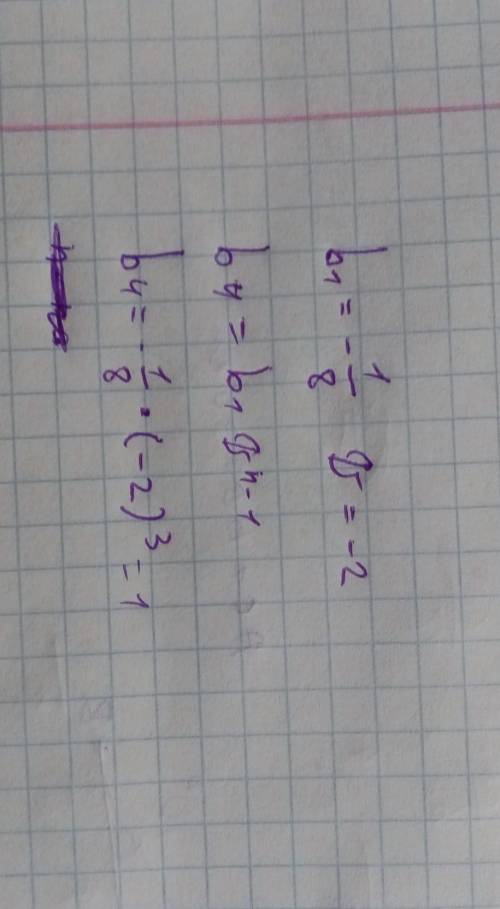 b1 = -1/8 q = -2
b4 = b1 q^4-1
b4 = -1/8 · (-2)^3 = 1